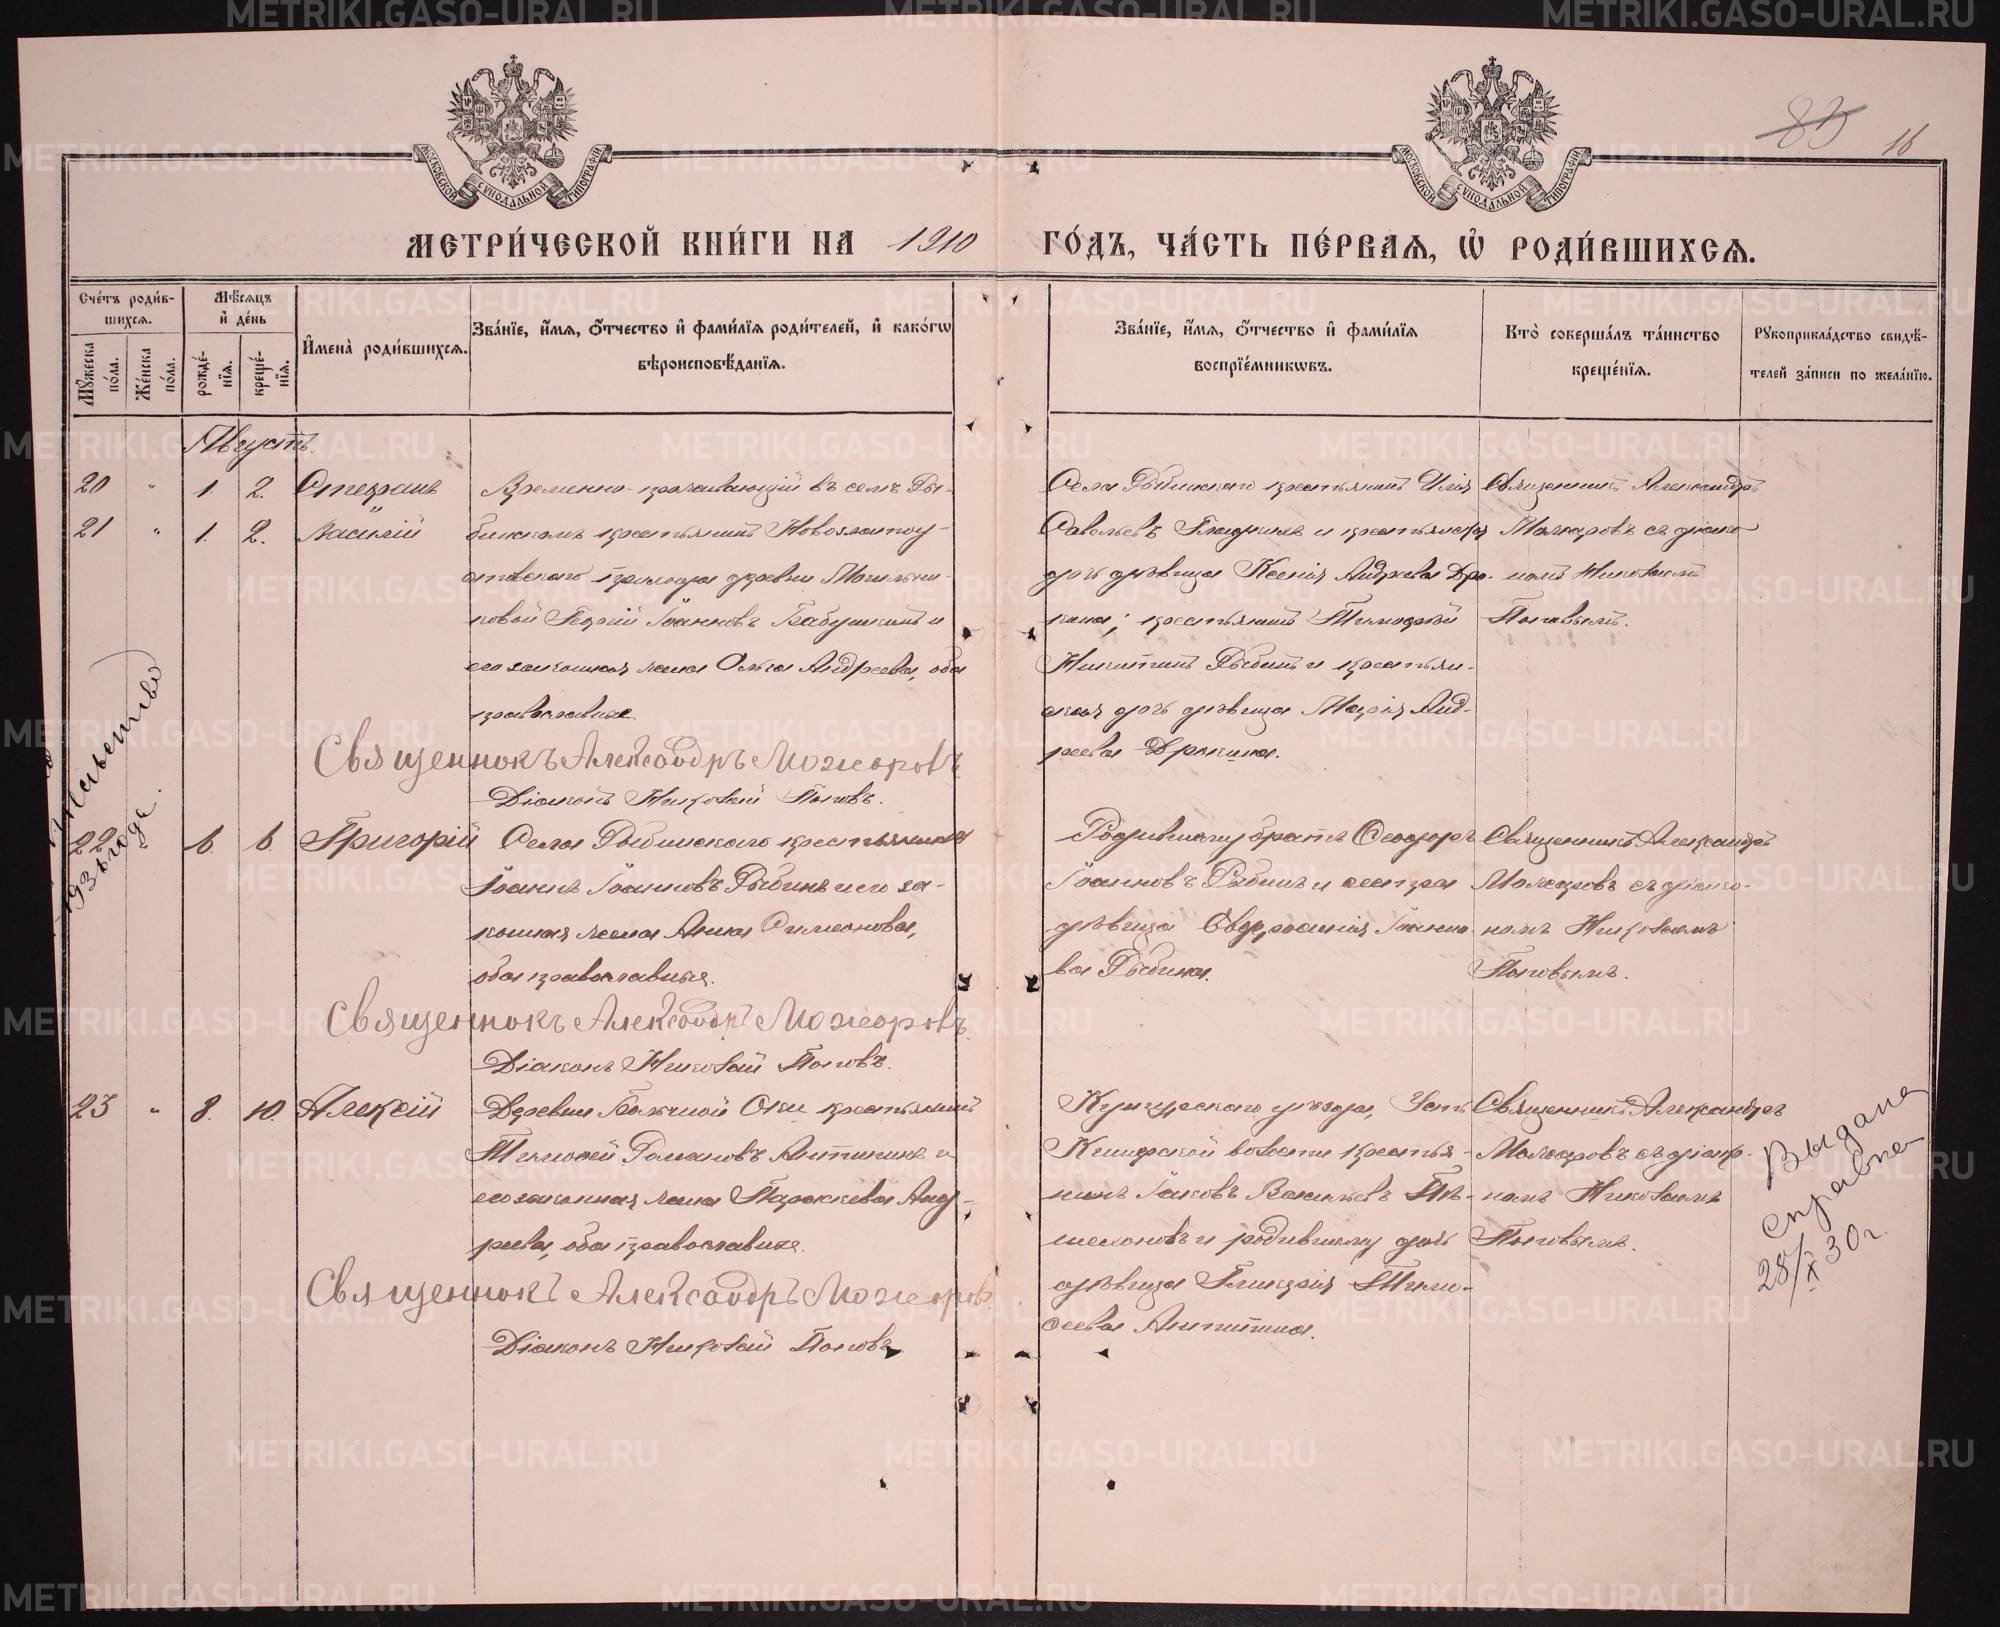 83 16
МОСКОВСКОЙ СѴНОДАЛЬНОЙ ТИПОГРАФІИ
МОСКОВСКОЙ СѴНОДАЛЬНОЙ ТИПОГРАФІИ
МЕТРИ́ЧЕСКОЙ КНИ́ГИ НА 1910 ГО́ДЪ, ЧА́СТЬ ПЕ́РВАѦ, Ѡ҆ РОДИ́ВШИХСѦ.
Сче́тъ роди́в-
шихсѧ.
Мꙋ́жеска по́ла.
Же́нска по́ла.
Мѣ́сѧцъ и҆ де́нь
рожде́-нїѧ.
креще́-нїѧ.
И҆мена̀ роди́вшихсѧ.
Зва́нїе, и҆́мѧ, ѻ҆́тчество и҆ фами́лїѧ роди́телей, и҆ како́гѡ
вѣроисповѣ́данїѧ.
Зва́нїе, и҆́мѧ, ѻ҆́тчество и҆ фами́лїѧ
воспрїе́мникѡвъ.
Кто̀ соверша́лъ та́инство
креще́нїѧ.
Рꙋкоприкла́дство свидѣ́-
телей за́писи по жела́нїю.
Августъ.
20 " 1. 2. Стефанъ
21 " 1. 2. Василій
Временно-проживающій въ селѣ Ры-
бинскомъ крестьянинъ Новозлатоу-
стовскаго прихода деревни Могильни-
ковой Георгій Іоанновъ Бабушкинъ и
его законная жена Ольга Андреева, оба
православные.
Села Рыбинскаго крестьянинъ Илія
Савельевъ и крестьянская
дочь дѣвица Ксенія Андреева Дро-
кина; крестьянинъ Тимофей
Никитинъ Рыбинъ и крестьян-
ская дочь дѣвица Марія Анд-
реева Дрокина.
Священникъ Александръ
Можаровъ съ діако-
номъ Николаемъ
Поповымъ.
Священнокъ Александръ Можаровъ
Діаконъ Николай Поповъ.
22 " 6. 6. Григорій
Села Рыбинскаго крестьянинъ
Іоаннъ Іоанновъ Рыбинъ и его за-
конная жена Анна Симеонова,
оба православные.
Родившагу братъ Ѳеодоръ
Іоанновъ Рыбинъ и сестра
дѣвица Евфросинія Іоанно-
ва Рыбина.
Священникъ Александръ
Можаровъ съ діако-
номъ Николаемъ
Поповымъ.
Священнокъ Александръ Можаровъ
Діаконъ Николай Поповъ.
23 " 8. 10. Алексій
Деревни Большой Оки крестьянинъ
Тимоѳей Романовъ Антипинъ и
его законная жена Параскева Анд-
реева, оба православные.
Кунгурскаго уѣзда, Усть
Кишерской волости крестья-
нинъ Іаковъ Васильевъ
и родившему дочь
дѣвица Гликерія Тимо-
ѳеева Антипина.
Священникъ Александръ
Можаровъ съ діако-
номъ Николаемъ
Поповымъ.
Священнокъ Александръ Можаровъ
Діаконъ Николай Поповъ
Выдана
справка
28/X 30 г.
METRIKI.GASO-URAL.RU